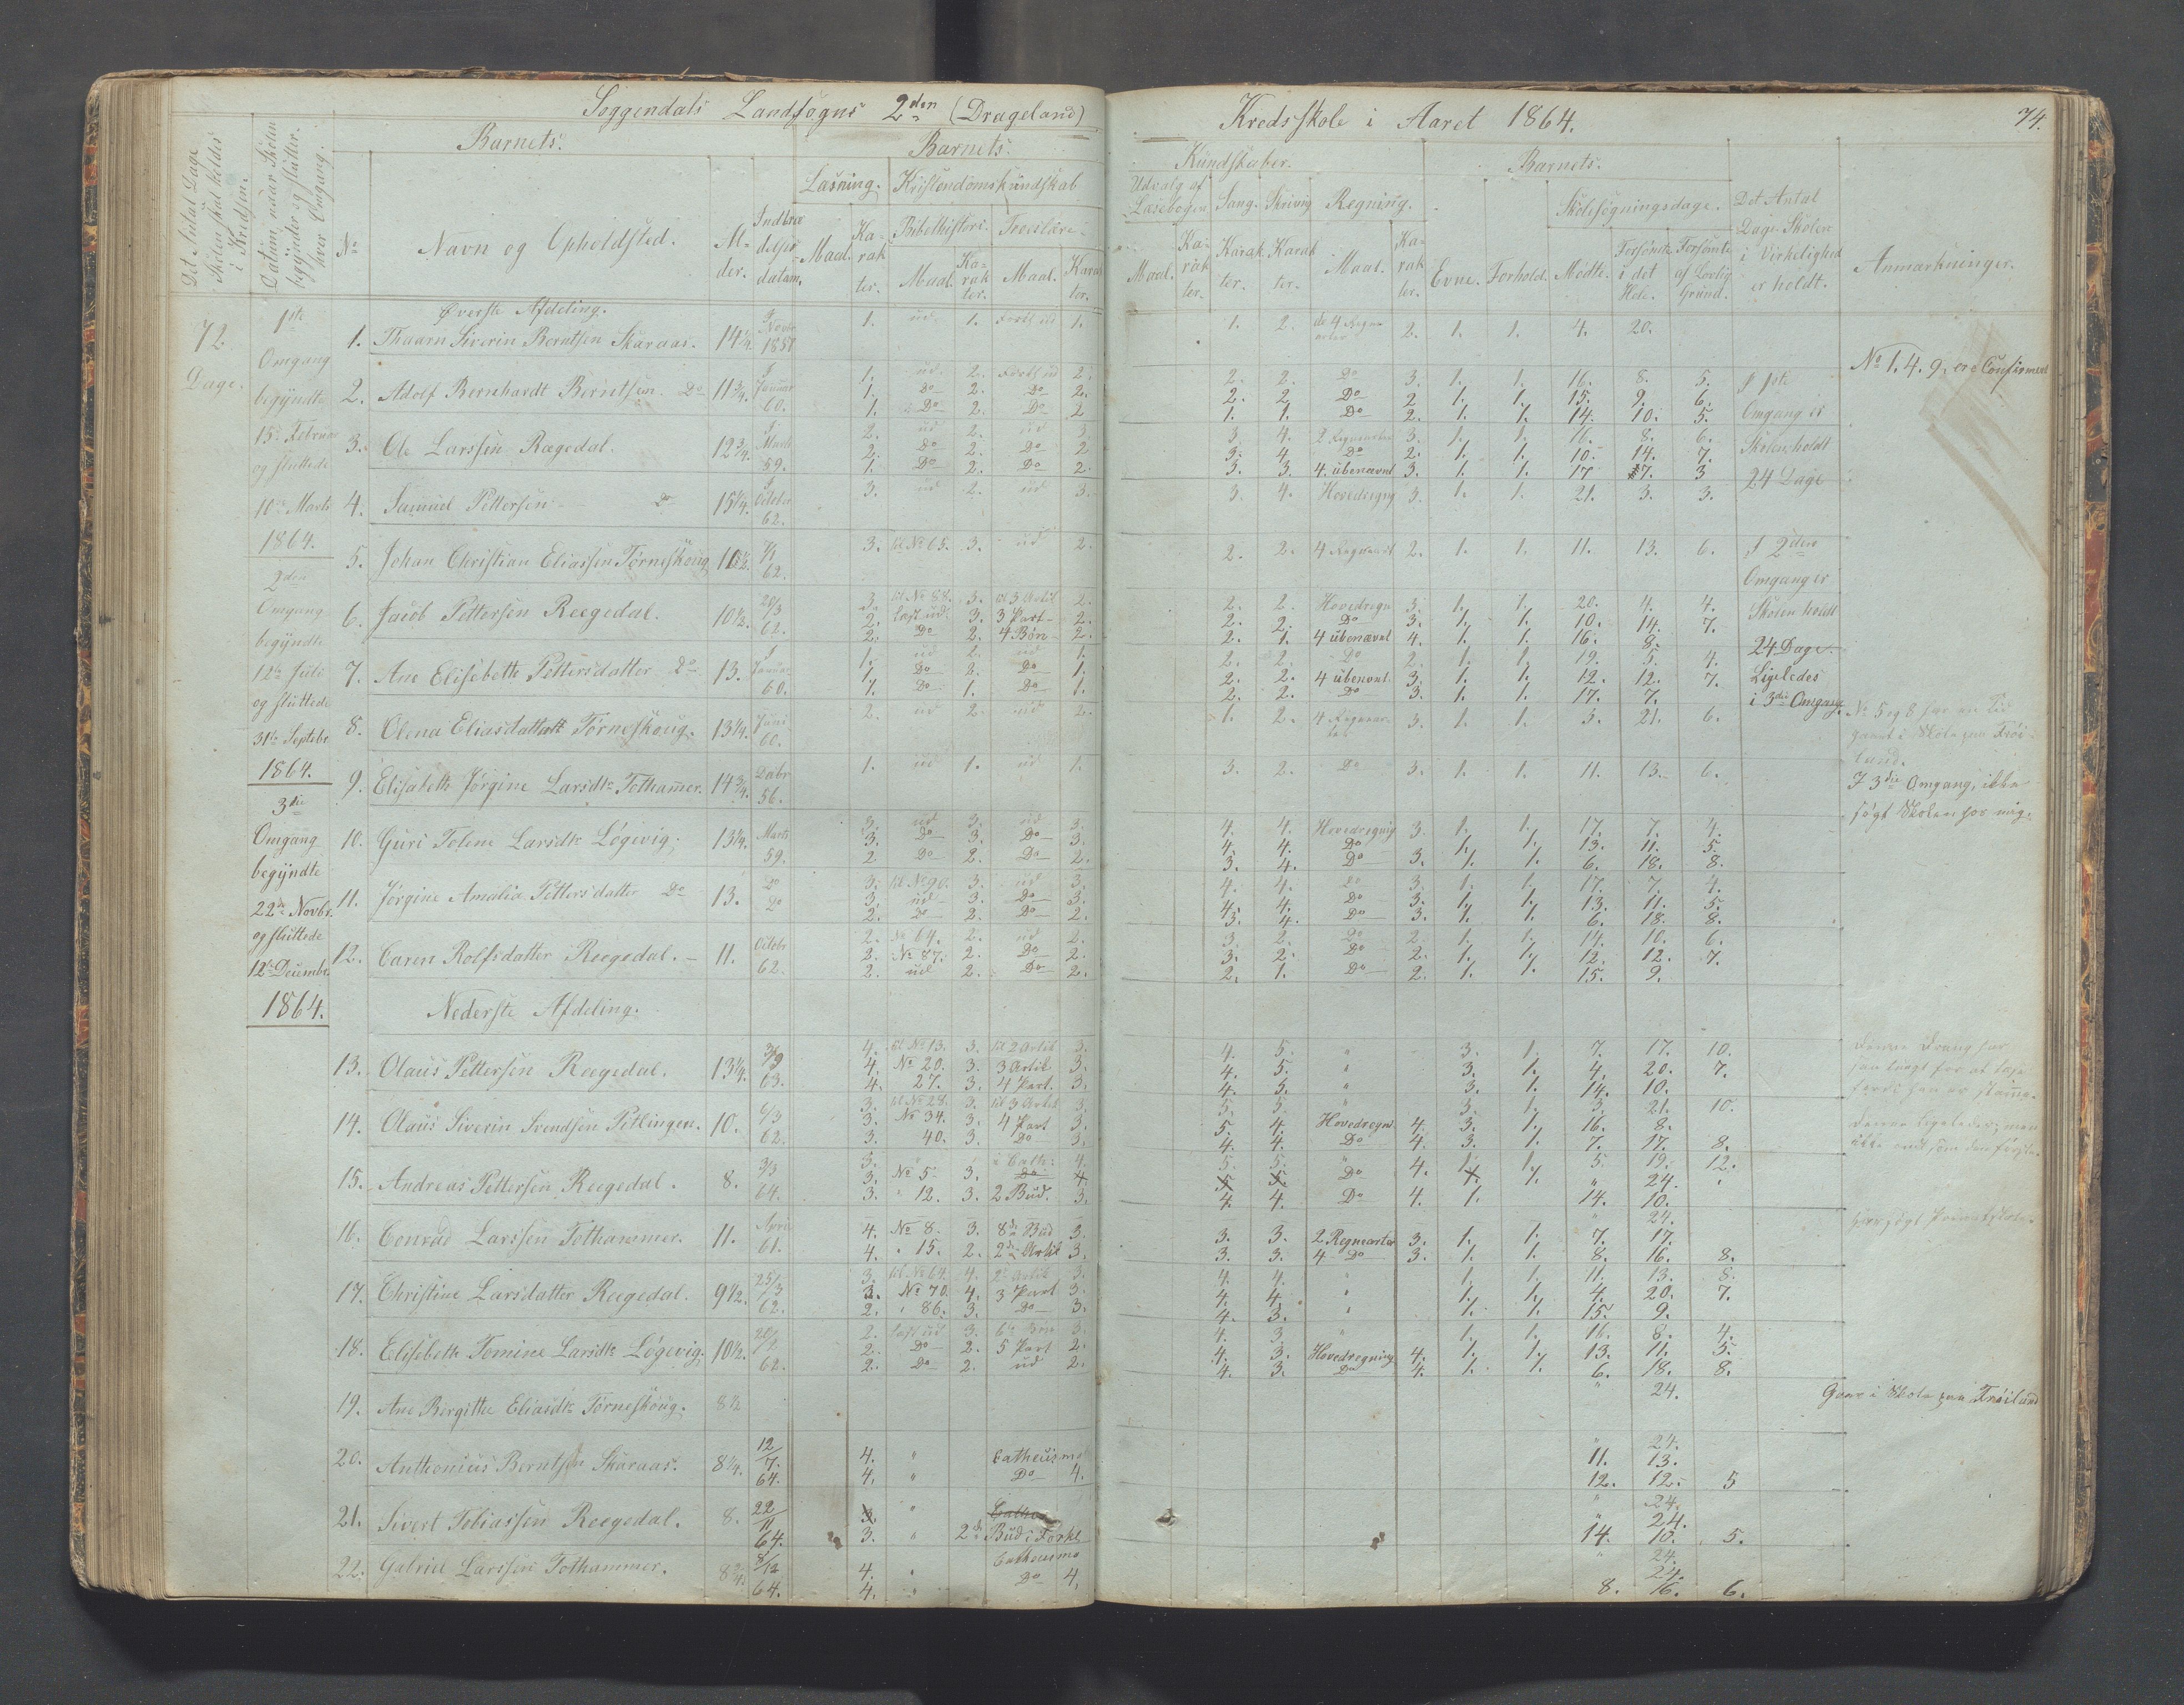 Soggendals Landsogns 2den (Drageland) Kredsskole i Aaret 1864. 74.
Det Antal Dage Skolen skal holdes i Kredsen.
Datum, naar Skolen begynder og slutter hver Omgang.
Barnets. Barnets. Kundskaber. Barnets.
No Navn og Opholdsted. Alder. Indtrædelses datum.
Læsning. Kristendomskundskab. Udvalg af Læsebogen Sang. Skrivng Regning.
Maal. Karakter. Bibelhistori. Troeslære.
Maal. Karakter. Maal. Karakter.
Maal. Karakter. Karakter. Karakter. Maal. Karakter. Evne. Forhold.
Skolesøgningsdage. Mødte. Forsømte i det Hele. Forsømte af Lovlig Grund.
Det Antal Dage Skolen i Virkelighed er holdt.
Anmærkninger.
72 Dage.
1ste Omgang begyndte 15de Februar og sluttede 10de Marts 1864.
2den Omgang begyndte 12te Juli og sluttede 31te Septebr 1864.
3die Omgang begyndte 22de Novbr. og sluttede 12te Decembr. 1864.
Øverste Afdeling.
1. Thaarn Siverin Berntsen Skaraas. 14½ 1. ud. 1. 1. 1. 2. de 4 Regnearter 2. 1. 1. 4. 20.
No 1. 4. 9. ere Confirmert
2. Adolf Bernhardt Berntsen Do 11¾. I Januar 60. 1. ud 2. 2. 2. 2. Do 3. 1. 1. 16. 8. 5.
1. Do 2. Do 2. 2. 2 Do 2 1. 1. 15. 9. 6.
1. Do 2. Do 2 1. 1. Do 2. 1. 1. 14. 10. 5.
I 1ste Omgang er Skolen holdt 24 Dage
3. Ole Larssen Rægedal. 12¾. I Marts 59. 2. ud 2. ud 3 3. 4. 2 Regnearter 3. 1. 1. 16. 8. 6.
2. Do 2. Do 2 3. 4 Do 2. 1. 1. 10. 14. 7.
1. Do 2. Do 2. 3. 3. 4. ubenævnt 3. 1. 1. 17 7. 3
4. Samuel Pettersen Do 15¼. I Octobr 62. 3. ud 2. ud 3. 3. 4. Hovedregng 3. 1. 1. 21. 3. 3.
5. Johan Christian Eliassen Tørneskoug 62. 3. til No 65. 3. ud 2. 2. 2. 4 Regnearter 2. 1. 1. 11. 13. 6.
I 2den Omgang er Skolen holdt 24 Dage.
6. Jacob Pettersen Reegedal. 10½. 62. 3. til No 88. 3. til 3 Artik 2. 2. 2. Hovedregn 3. 1. 1. 20. 4. 4.
2. læst ud. 3. 3 Part 2. 2. 2. Do 3. 1. 1. 10. 14. 7.
2. Do 2. 4 Bøn 2. 2. 1. 4 ubenævnt 4. 1. 1. 16. 8.
7. Ane Elisebeth Pettersdatter Do 13. I Januar 60. 1. ud 2. ud 1. 2. 2. Do 2. 1. 1. 19. 5. 4.
1. Do 2. Do 1. 2. 2. 4 ubenvnt. 3. 1. 1. 12. 12. 7.
1. Do 1. Do 1. 2. 2. Do 3. 1. 1. 17. 7.
Ligeledes i 3die Omgang.
8. Olena Eliasdatter Tørneskoug. 13¼. Juni 60. 2. ud 2. ud 2. 1. 2. 4 Regnearter 3. 1. 1. 3. 21. 6.
No 5 og 8 har en Tid gaaet i Skole paa Frøiland.
9. Elisabeth Jørgine Larsdtr Tothammer. 14¾. Decbr 56. 1. ud 1. ud 1. 3. 2. Do 3. 1. 1. 11. 13. 6.
I 3die Omgang, ikke søgt Skolen hos mig.
10. Guri Tolene Larsdtr Løgevig. 13¼. Marts 59. 3. ud 3. ud 3. 4. 4. Hovedregnig 3. 1. 1. 17. 7. 4.
3. Do 3. Do 3. 4. 4. Do 1. 1. 13. 11. 5.
2. Do 2. Do 2. 3. 4. Do 3. 1. 1. 6. 18. 8.
11. Jørgine Amalia Pettersdatter Do 13. Do Do 3. til No 90. 3. ud 3. 4. 4. Do 3. 1. 1. 17. 7. 4.
3. ud 3. Do 3. 4. 4. Do 3. 1. 1. 13. 11. 5.
2. Do 2. Do 2. 3. 4. Do 3. 1. 1. 6. 18. 8.
12. Caren Rolfsdatter Reegedal. 11. Octobr 62. 2. No 64. 2. ud 2. 3. 2. Do 2. 1. 1. 14. 10. 6.
2. No 87. 2. Do 2. 3. 2. Do 2. 1. 1. 12. 12. 7.
2. ud 2. Do 2. 2. 1. Do 2. 1. 1. 15. 9.
Nederste Afdeling.
13. Olaus Pettersen Reegedal. 13¼. 3/9 63. 4. til No 13. 3. til 2 Artik 3. 4. 5. " 3. 1. 7. 17. 10.
4. No 20. 3. 3 Artik 3. 4. 5. " 3. 1. 4. 20. 7.
4. 27. 3. 4 Part. 3. 4. 5. " 3. 1. 14. 10.
14. Olaus Siverin Svendsen Pitlingen. 10. 6/3 62. 3. til No 28. 3. til 3 Artik 3. 5. 5. " 3. 1. 3. 21. 10.
3. No 34. 3. 4 Part 3. 5. 4. Hovedregn 4. 3. 1. 16. 8.
3. 40. 3. Do 3. 4. 4. Do 4. 3. 1. 7. 17. 8.
15. Andreas Pettersen Reegedal. 8. 3/3 64. 3. i Cath: 4. 5. 5. " 1. 1. 5. 19. 12.
3. No 5. 3. Do 4 5 5 Do 4. 1. 1. " 24.
3. " 12. 3. 2 Bud. 3. 4. 4. Do 4. 1. 14. 10.
16. Conrad Larssen Tothammer. 11. April 61. " 24.
4. No 8. 3. 8de Bud 3. 3. 3. 2 Regnearter 3. 1. 1. 7. 17.
4. " 15. 2. 2den Artik 3. 3. 3. 4 Do 3. 1. 1. 8. 16. 8.
17. Christine Larsdatter Reegedal. 9½. 62. 3. til No 64. 4. 2den Artik 3. 4. 4. " 1. 1. 11. 13. 8.
3. No 70. 4. 3 Part 3. 4. 4. " 1. 1. 4. 20. 7.
2. " 86. 3. Do 3. 4. 3. " 1. 1. 15. 9.
18. Elisebeth Tomine Larsdtr Løgevig. 10½. 62. 2. læst ud 3. 3. 4. 3. " 1. 1. 16. 8. 4.
2. Do 2. 5 Part 2. 4. 3. Hovedregning 4. 1. 1. 13. 11. 5.
2. Do 2. ud 2. 4. 3. Do 4. 1. 1. 6. 18. 8.
19. Ane Bergitthe Eliasdtr Tørneskoug. 8½ " 24.
Gaar i Skole paa Frøiland
20. Anthonius Berntsen Skaraas. 8¼. 12/7. 64. " 24.
4. " Cathecismo 11. 13.
4. " Do 4. 12. 12. 5
21. Sivert Tobiassen Reegedal. 8. 22/11 64. " 24.
3. " " 24.
3. " 2det Bud i Forkl. 14. 10. 5.
22. Gabriel Larssen Tothammer. 8¾. 8/12 64. " 24.
4. " Cathecismo 24.
4. " Do 4. 8. 16. 6.